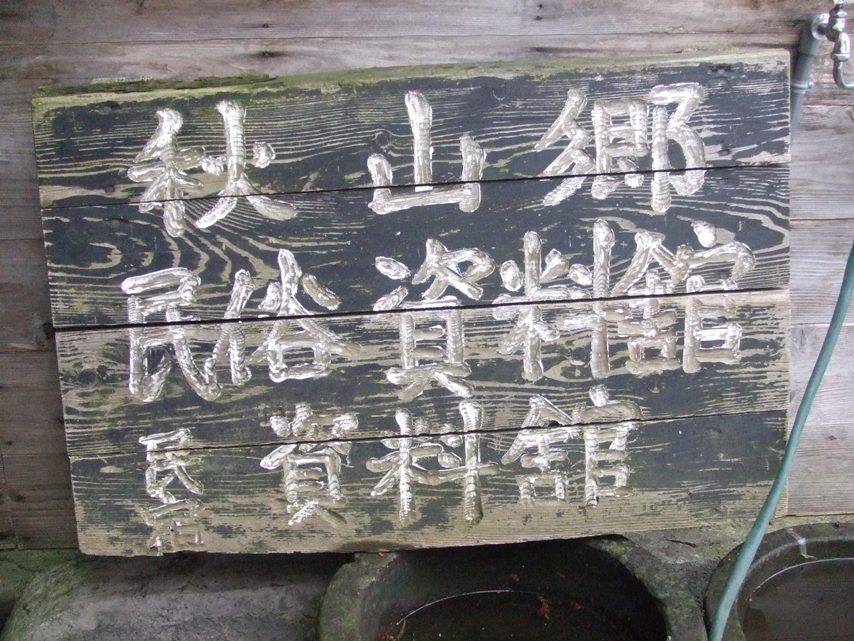 秋山郷
民俗資料館
民宿資料館